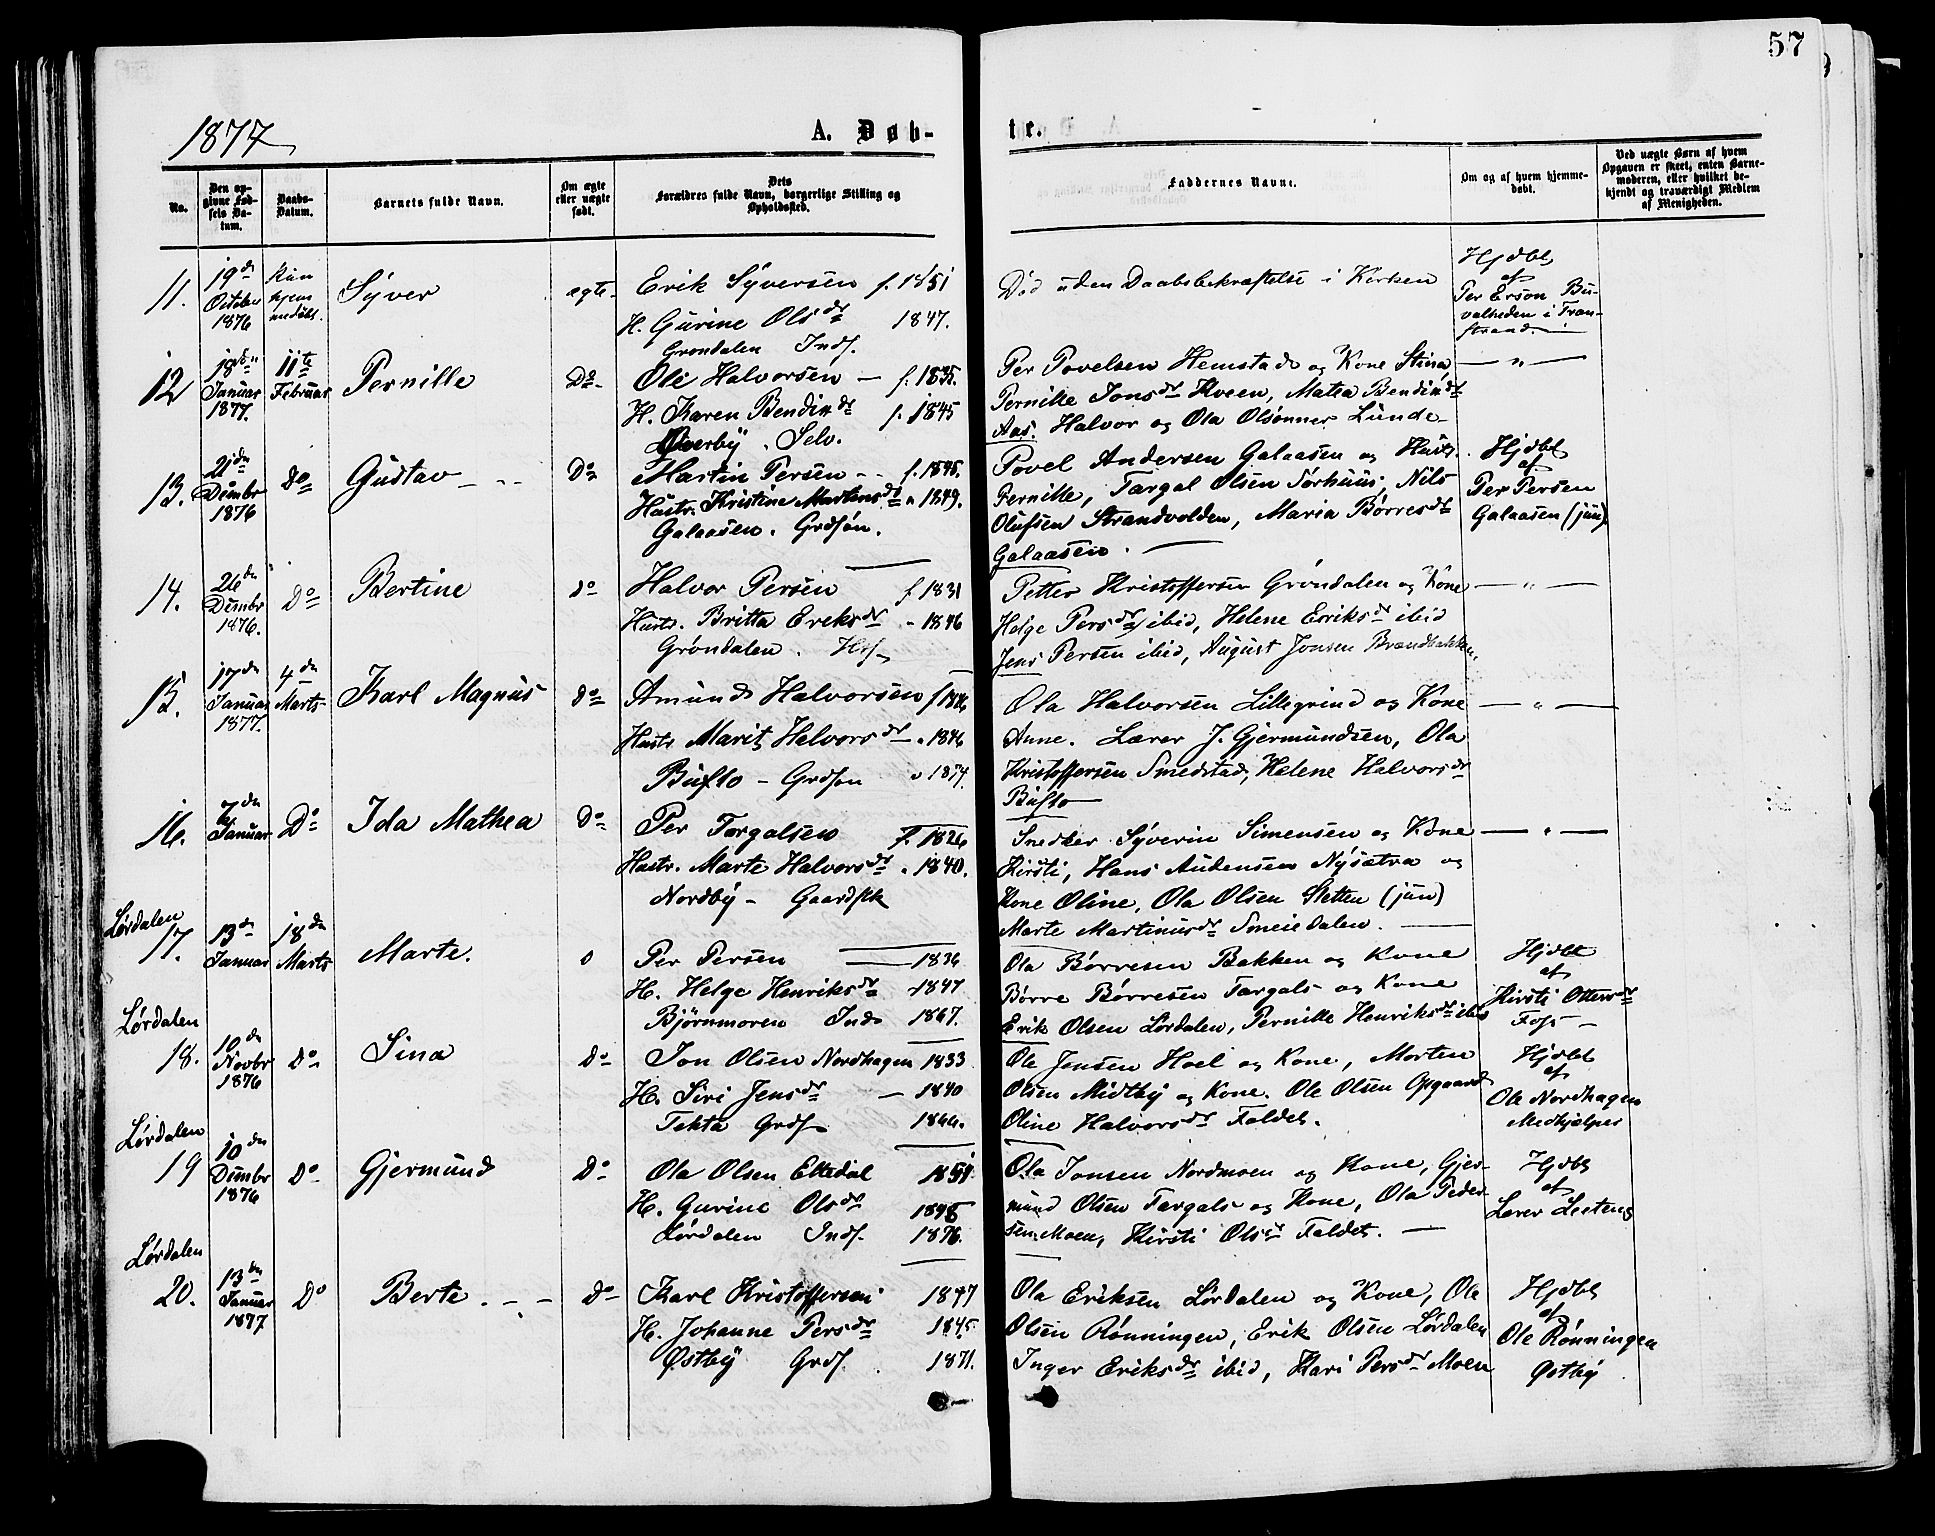 57
1877
A. Døb-
te.
No.
Den op-
givne Fød-
sels Da-
tum.
Daabs-
Datum.
Barnets fulde Navn.
Om ægte
eller uægte
født.
Dets
Forældres fulde Navn, borgerlige Stilling og
Opholdssted.
Faddernes Navne.
Om og af hvem hjemme-
døbt.
Ved uægte Børn af hvem
Opgaven er skeet, enten Barne-
moderen, eller hvilket be-
kjendt og troværdigt Medlem
af Menigheden.
11.
19de
October
1876
Kun
hjem
medøbt.
Syver
ægte
Erik Syversen f. 1851
H. Gurine Olsdr 1847.
Grøndalen Inds.
Død uden Daabsbekræftelse i Kirken
Hjdbt
af
Per Erson Bu-
valheden i Tran-
strand
12
18de
Januar
1877.
11te
Februar
Pernille
Do
Ole Halvorsen — f. 1835.
H. Karen Bendixdr f. 1845
Øverby. Selv.
Per Povelsen Hemstad og Kone Stina,
Pernille Jonsdr Kveen, Matea Bendixdr
Aas. Halvor og Ola Olsønner Lunde
— " —
13.
21de
Dcmbr
1876
Do
Gustav
Do
Martin Persen f. 1845.
Hustr. Kristine Martinsdr " 1849.
Galaasen. Grdsøn.
Povel Andersen Galaasen og Hustr.
Pernille, Targal Olsen Sørhuus, Nils
Olufsen Strandvolden, Maria Børresdr
Galaasen.
Hjdbt
af
Per Persen
Galaasen (jun)
14.
26de
Dcmbr
1876.
Do
Bertine
do
Halvor Persen f. 1831
Hustr. Britta Eriksdr " 1846
Grøndalen. Hsf
Petter Kristoffersen Grøndalen og Kone
Helge Persdr ibid, Helene Eriksdr ibid
Jens Persen ibid, August Jonsen Brandbakken.
— " —
15.
17de
Januar
1877.
4de
Marts
Karl Magnus
do
Amund Halvorsen f 1846
Hustr Marit Halvorsdr " 1846
Buflo — Grdsøn " 1874
Ola Halvorsen Lillegrind og Kone
Anne. Lærer J. Gjermundsen, Ola
Kristoffersen Smedstad, Helene Halvorsdr
Buflo
— " —
16.
7de
Januar
Do
Ida Mathea
Do
Per Targalsen f. 1826
Hustr. Marte Halvorsdr " 1840.
Nordby — Gaardsk
Snedker Syverin Simensen og Kone
Kirsti, Hans Audensen Nysætra og
Kone Oline, Ola Olsen Sletten (jun)
Marte Martinusdr Smeiedalen.
— " —
Lørdalen
17.
13de
Januar
18de
Marts
Marte.
Per Persen 1836
H. Helge Henriksdr 1847
Bjørnmoren Inds 1867.
Ola Børresen Bakken og Kone
Børre Børresen Targals og Kone
Erik Olsen Lørdalen, Pernille Henriksdr ibid
Hjdbt
af
Kirsti Ottersdr
Foss
Lørdalen
18.
10de
Novbr
1876
Do
Sina
Do
Jon Olsen Nordhagen 1833
H. Siri Jensdr — 1840
Tekta Grds 1866.
Ole Jensen Hoel og Kone, Morten
Olsen Midtby og Kone. Ole Olsen Opgaard
Oline Halvorsdr Faldet.
Hjdbt
af
Ole Nordhagen
Medhjælper
Lørdalen
19
10de
Dcmbr
1876
Do
Gjermund
Do
Ola Olsen Eltdal 1851
H. Gurine Olsdr 1848
Lørdalen Inds. 1876.
Ola Jonsen Nordmoen og Kone, Gjer-
mund Olsen Targals og Kone, Ola Peder-
sen Moen, Kirsti Olsdr Faldet.
Hjdbt
af
Lærer Leeteng
Lørdalen
20.
13de
Januar
1877
Do
Berte
Do
Karl Kristoffersen 1847
H. Johanne Persdr 1845
Østby Grds. 1871.
Ola Eriksen Lørdalen og Kone, Ole
Olsen Rønningen, Erik Olsen Lørdalen
Inger Eriksdr ibid, Kari Persdr Moen
Hjdbt
af
Ole Rønningen
Østby